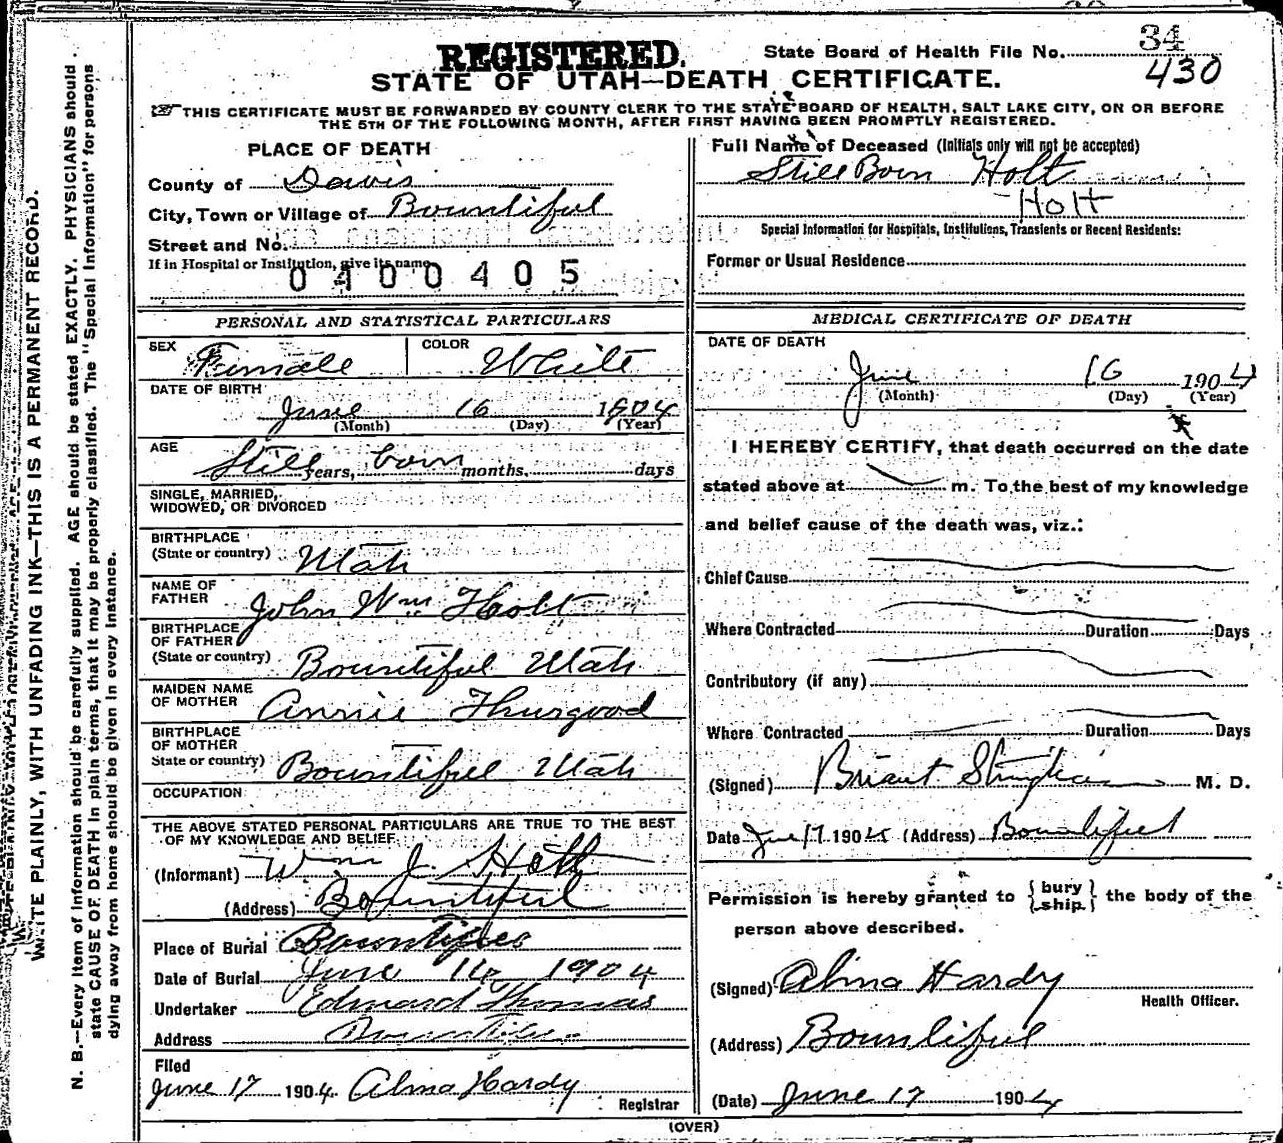 34
REGISTERED. State Board of Health File No. 430
STATE OF UTAH—DEATH CERTIFICATE.
THIS CERTIFICATE MUST BE FORWARDED BY COUNTY CLERK TO THE STATE BOARD OF HEALTH, SALT LAKE CITY, ON OR BEFORE
THE 5TH OF THE FOLLOWING MONTH, AFTER FIRST HAVING BEEN PROMPTLY REGISTERED.
PLACE OF DEATH
County of Davis
City, Town or Village of Bountiful
Street and No.
If in Hospital or Institution, give its name
0400405
Full Name of Deceased (Initials only will not be accepted)
Still Born Holt
Holt
Special Information for Hospitals, Institutions, Transients or Recent Residents:
Former or Usual Residence
PERSONAL AND STATISTICAL PARTICULARS
SEX Female COLOR White
DATE OF BIRTH
June 16 1904
(Month) (Day) (Year)
AGE
Still years, born months. days
SINGLE, MARRIED,
WIDOWED, OR DIVORCED
BIRTHPLACE
(State or country) Utah
NAME OF
FATHER John Wm Holt
BIRTHPLACE
OF FATHER
(State or country) Bountiful Utah
MAIDEN NAME
OF MOTHER Annie Thurgood
BIRTHPLACE
OF MOTHER
State or country) Bountiful Utah
OCCUPATION
THE ABOVE STATED PERSONAL PARTICULARS ARE TRUE TO THE BEST
OF MY KNOWLEDGE AND BELIEF
(Informant) Wm J. Holt
(Address) Bountiful
Place of Burial Bountiful
Date of Burial June 16 1904
Undertaker Edward Thomas
Address Bountiful
Filed
June 17 1904 Alma Hardy
Registrar
MEDICAL CERTIFICATE OF DEATH
DATE OF DEATH
June 16 1904
(Month) (Day) (Year)
I HEREBY CERTIFY, that death occurred on the date
stated above at m. To the best of my knowledge
and belief cause of the death was, viz.:
Chief Cause
Where Contracted Duration Days
Contributory (if any)
Where Contracted Duration Days
(Signed) Briant Stringham M. D.
Date Jun 17 1904 (Address) Bountiful
Permission is hereby granted to {bury
ship} the body of the
person above described.
(Signed) Alma Hardy
Health Officer.
(Address) Bountiful
(Date) June 17 1904
(OVER)
WRITE PLAINLY, WITH UNFADING INK—THIS IS A PERMANENT RECORD.
N. B.—Every item of information should be carefully supplied. AGE should be stated EXACTLY. PHYSICIANS should
state CAUSE OF DEATH in plain terms, that it may be properly classified. The "Special Information" for persons
dying away from home should be given in every instance.